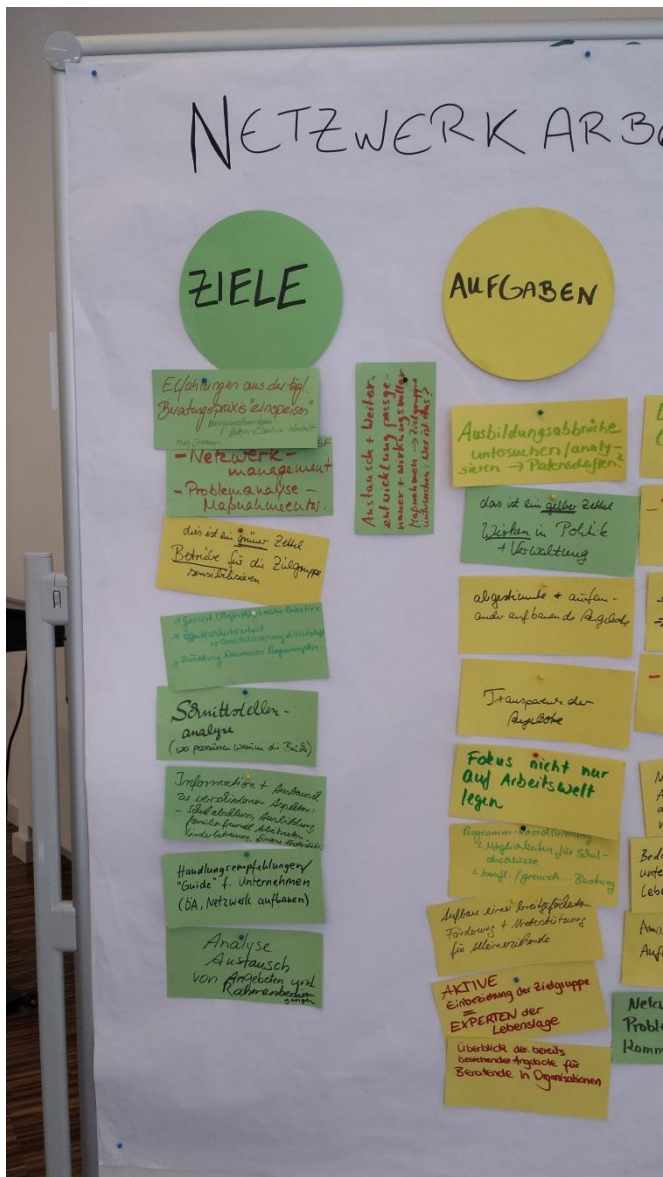 NETZWERKARBE
ZIELE
Erfahrungen aus der tägl.
Beratungspraxis "einspeisen"
- Netzwerk-
management
- Problemanalyse -
Maßnahmeentw.
dies ist ein grüner Zettel
Betriebe für die Zielgruppe
sensibilisieren
Öffentlichkeitsarbeit
Schnittstellen-
analyse
(wo passieren warum die Brüche)
Information + Austausch
zu verschiedenen Aspekten:
- Schulabschluss, Ausbildung,
Kinderbetreuung,
Handlungsempfehlungen/
"Guide" f. Unternehmen
(ÖA, Netzwerk aufbauen)
Analyse
Austausch
von Angeboten und
Rahmenbedin-
gungen
Austausch + Weiter-
entwicklung passge-
nauer + wirkungsvoller
Maßnahmen → Zielgruppe
untersuchen: Wer ist das?
AUFGABEN
Ausbildungsabbrüche
untersuchen/analy-
sieren → Patenschaften?
das ist ein gelber Zettel
Wirken in Politik
+ Verwaltung
abgestimmte + aufein-
ander aufbauende Angebote
Transparenz der
Angebote
Fokus nicht nur
auf Arbeitswelt
legen
Programm-Koordinierung
Möglichkeiten für Schul-
abschlüsse
Beratung
Aufbau einer breitgefächerten
Förderung + Unterstützung
für Alleinerziehende
AKTIVE
Einbeziehung der Zielgruppe
=
EXPERTEN der
Lebenslage
Überblick der bereits
bestehenden Angebote für
Beratende in Organisationen